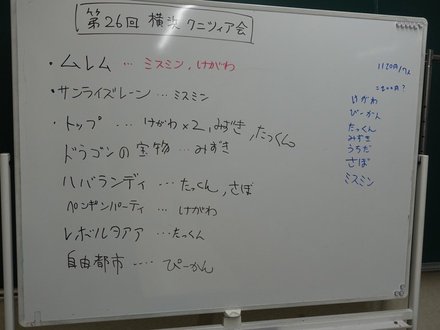 第26回 横浜 クニツィア会
・ムレム … ミスミン, けがわ
・サンライズレーン … ミスミン
・トップ … けがわ×2, みずき, たっくん
ドラゴンの宝物 … みずき
ハバランディ … たっくん, さぼ
ペンギンパーティ … けがわ
レボルヲアア … たっくん
自由都市 … ぴーかん
1120円/1人
けがわ
ぴーかん
たっくん
みずき
うちだ
さぼ
ミスミン